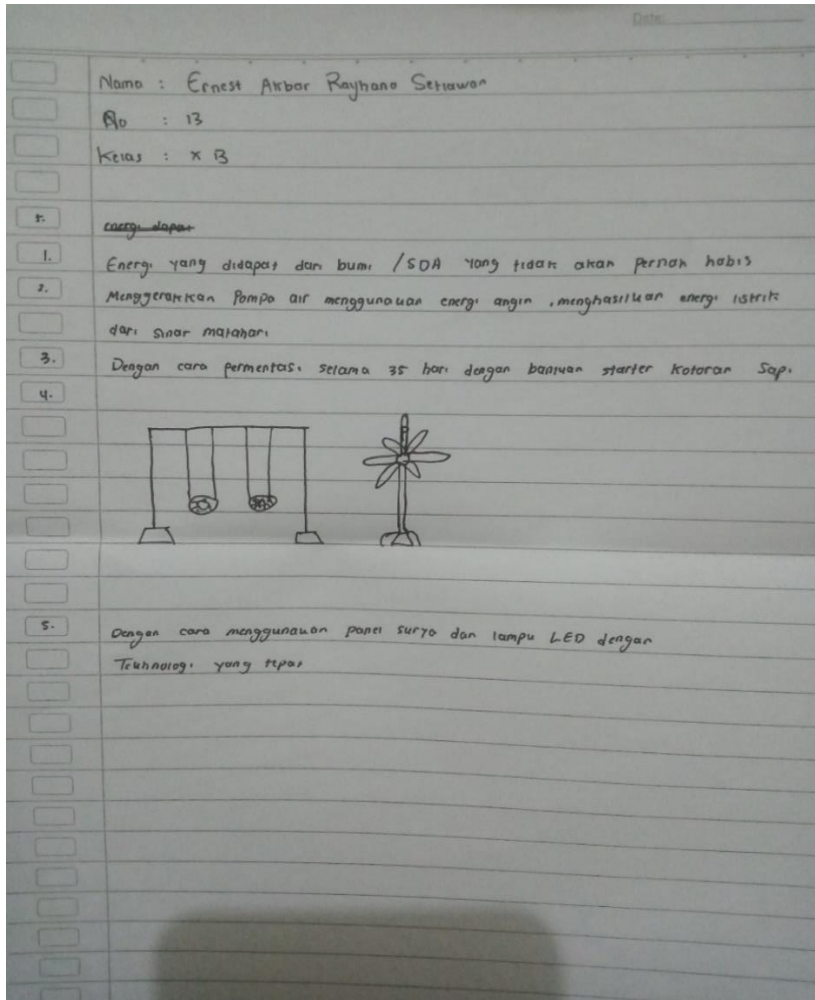 Date:
Nama : Ernest Akbar Rayhano Setiawan
No : 13
Kelas : X B
1.
1. Energi yang didapat dari bumi / SDA yang tidak akan pernah habis
2. Menggerakkan Pompa air menggunakan energi angin , menghasilkan energi listrik
dari sinar matahari
3. Dengan cara permentasi selama 35 hari dengan bantuan starter kotoran Sapi
4.
5. Dengan cara menggunakan panel surya dan lampu LED dengan
Teknologi yang tepat